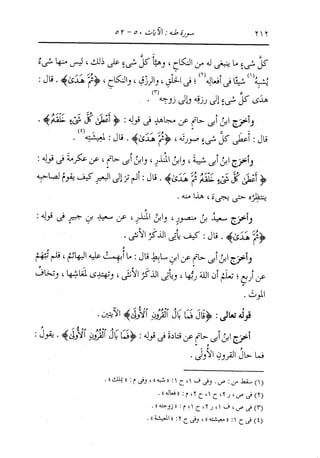 ٢١٢ سورة طه : الآيات ٥٠ - ٥٢
كلَّ شيءٍ ما ينبغى له من النكاحِ ، وهيَّأ كلَّ شيءٍ على ذلك ، ليس منها شيءٌ
يُشبِهُ(١) شيئًا فى أفعالِه(٢) ؛ فى الخَلْقِ ، والرزقِ ، والنكاحِ ، ﴿ثُمَّ هَدَىٰ﴾ . قال :
هدَى كلَّ شيءٍ إلى رزقِه وإلى زوجِه(٣) .
وأخرَج ابنُ أبى حاتمٍ عن مجاهدٍ فى قولِه : ﴿أَعْطَىٰ كُلَّ شَىْءٍ خَلْقَهُۥ﴾ .
قال : أعطَى كلَّ شيءٍ صورتَه ، ﴿ثُمَّ هَدَىٰ﴾ . قال : لمعيشتِه(٤) .
وأخرَج ابنُ أبى شيبةَ ، وابنُ المنذرِ ، وابنُ أبى حاتمٍ ، عن عكرمةَ فى قولِه :
﴿أَعْطَىٰ كُلَّ شَىْءٍ خَلْقَهُۥ ثُمَّ هَدَىٰ﴾ . قال : ألم ترَ إلى البعيرِ كيف يقومُ لصاحبِه
ينتظِرُه حتى يجىءَ ، هذا منه .
وأخرَج سعيدُ بنُ منصورٍ ، وابنُ المنذرِ ، عن سعيدِ بنِ جبيرٍ فى قولِه :
﴿ثُمَّ هَدَىٰ﴾ . قال : كيف يأتى الذكرُ الأنثى .
وأخرَج ابنُ أبى حاتمٍ عن ابنِ سابطٍ قال : ما أُبهِمَت عليه البهائمُ ، فلم تُبْهَمْ
عن أربعٍ ؛ تعلمُ أن اللهَ ربُّها ، ويأتى الذكرُ الأنثى ، وتهتدِى لمعاشِها ، وتخافُ
الموتَ .
قولُه تعالى : ﴿قَالَ فَمَا بَالُ ٱلْقُرُونِ ٱلْأُولَىٰ﴾ الآيتين .
أخرَج ابنُ أبى حاتمٍ عن قتادةَ فى قولِه : ﴿فَمَا بَالُ ٱلْقُرُونِ ٱلْأُولَىٰ﴾ . يقولُ :
فما حالُ القرونِ الأولى .
(١) سقط من : ص . وفى ف ١ ، ح ١ : « شبه » ، وفى م : « يملك » .
(٢) فى ص ، ر ٢ ، ح ١ ، ح ٢ ، م : « فعاله » .
(٣) فى ص ، ف ١ ، ر ٢ ، ح ١ ، م : « زوجته » .
(٤) فى ح ١ : « معيشته » ، وفى ح ٢ : « المعيشة » .